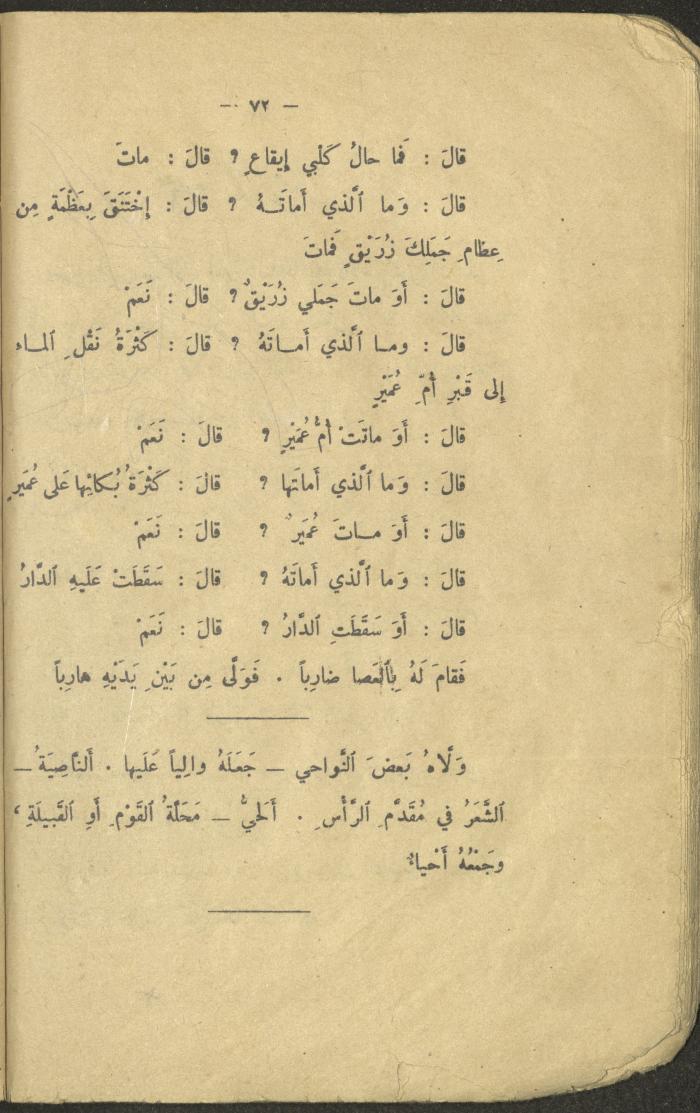 — ٧٢ —
قالَ : فَما حالُ كَلْبي إيقاعٍ ؟ قالَ : ماتَ
قالَ : وَما ٱلَّذي أَماتَـهُ ؟ قالَ : إِخْتَنَقَ بِعَظْمَةٍ مِن
عِظامِ جَمَلِكَ زُرَيْقٍ فَماتَ
قالَ : أَوَ ماتَ جَمَلي زُرَيْقٌ ؟ قالَ : نَعَمْ
قالَ : ومـا ٱلَّذي أَمـاتَهُ ؟ قالَ : كَثْرَةُ نَقْلِ ٱلمـاء
إِلى قَبْرِ أُمِّ عُمَيْرٍ
قالَ : أَوَ ماتَتْ أُمُّ عُمَيْرٍ ؟ قالَ : نَعَمْ
قالَ : وَما ٱلَّذي أَماتَها ؟ قالَ : كَثْرَةُ بُكائِها عَلى عُمَيرٍ
قالَ : أَوَ مـاتَ عُمَيرٌ ؟ قالَ : نَعَمْ
قالَ : وَما ٱلَّذي أَماتَهُ ؟ قالَ : سَقَطَتْ عَلَيهِ ٱلدَّارُ
قالَ : أَوَ سَقَطَتِ ٱلدَّارُ ؟ قالَ : نَعَمْ
فَقامَ لَهُ بِٱلعَصا ضارِباً . فَوَلَّى مِن بَيْنِ يَدَيْهِ هارِباً
وَلَّاهُ بَعضَ ٱلنَّواحي — جَعَلَهُ والِياً عَلَيها . أَلنّاصِيَةُ —
ٱلشَّعَرُ في مُقَدَّمِ ٱلرَّأْسِ . أَلحَيُّ — مَحَلَّةُ ٱلقَوْمِ أَوِ ٱلقَبيلَةِ ،
وجَمْعُهُ أَحْياءٌ